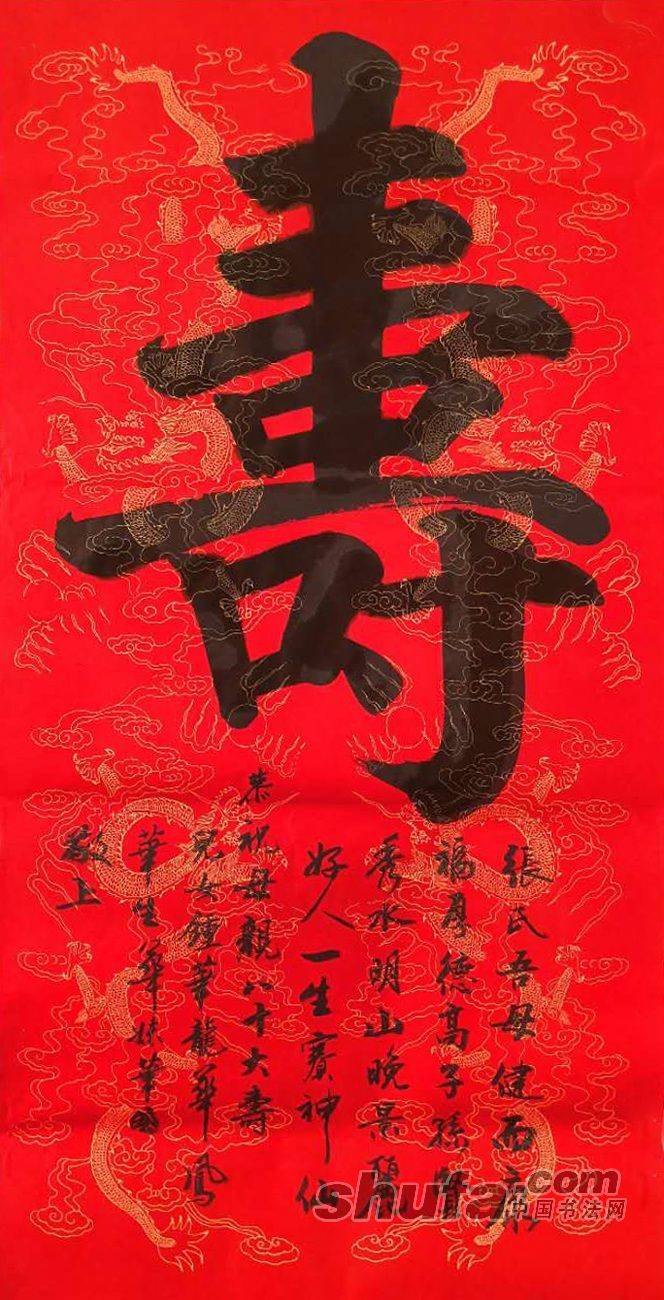 壽
張氏吾母健而康
福厚德高子孫賢
秀水明山晚景
好人一生賽神仙
恭祝母親八十大壽
兒女鍾華龍華鳳
華生華妹華
敬上
shufa.com
中国书法网